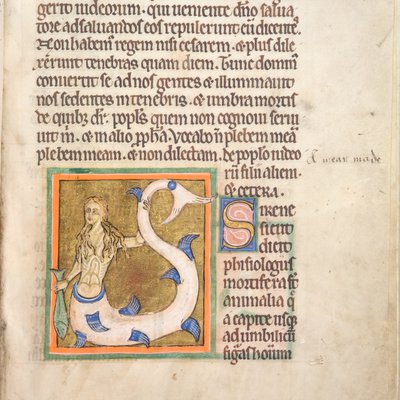 gerto iudeorum. qui ueniente dño salua
tore ad saluandos eos repulerunt eū dicentes.
Non habem' regem nisi cesarem. & plus dile
xerunt tenebras quam diem. Tunc domin'
conuertit se ad nos gentes & illuminauit
nos sedentes in tenebris. & umbra mortis
de quib; dr̄. popl's quem non cognoui serui
uit m̄. & in alio ppha. Vocabo ñ plebem meā
plebem meam. & non dilectam. De poplo iudeo
rū filii alieni
& cetera.
Sirene
sicut
dicit
phisiologus
mortifera sūt
animalia q̄
a capite usq;
ad umbilicū
figā hominū